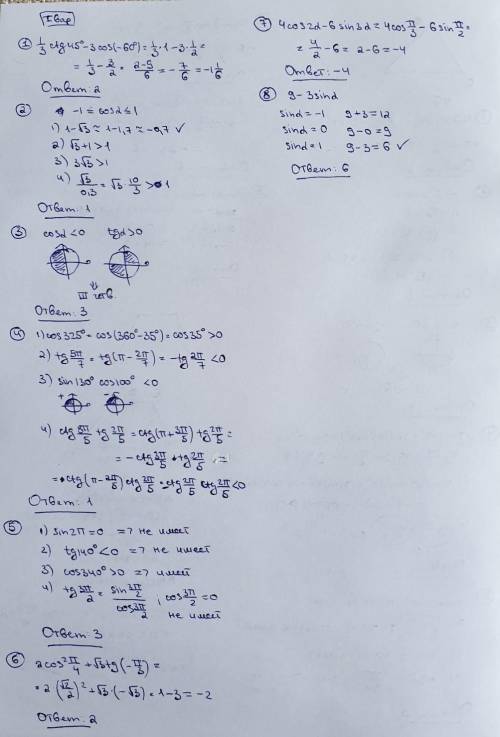 I вар
① 1/3 ctg45° - 3cos(-60°) = 1/3·1 - 3·1/2 =
= 1/3 - 3/2 = (2-9)/6 = -7/6 = -1 1/6
Ответ: 2
② -1 ≤ cosα ≤ 1
1) 1-√3 ≈ 1-1,7 ≈ -0,7 ✓
2) √3+1 > 1
3) 3√3 > 1
4) √3/0,3 = √3·10/3 > 1
Ответ: 1
③ cosα < 0 tgα > 0
⇓
III четв.
Ответ: 3
④ 1) cos325° = cos(360°-35°) = cos35° > 0
2) tg 5π/7 = tg(π - 2π/7) = -tg 2π/7 < 0
3) sin130° cos100° < 0
4) ctg 8π/5 tg 2π/5 = ctg(π + 3π/5) tg 2π/5 =
= -ctg 3π/5 · tg 2π/5 =
= ctg(π - 2π/5) ctg 2π/5 = ctg 2π/5 ctg 2π/5 < 0
Ответ: 1
⑤ 1) sin2π = 0 => не имеет
2) tg140° < 0 => не имеет
3) cos340° > 0 => имеет
4) tg 3π/2 = sin 3π/2 / cos 3π/2, cos 3π/2 = 0
не имеет
Ответ: 3
⑥ 2cos² π/4 + √3 tg(-π/3) =
= 2(√2/2)² + √3·(-√3) = 1-3 = -2
Ответ: 2
⑦ 4cos2α - 6sin3α = 4cos π/3 - 6sin π/2 =
= 4/2 - 6 = 2-6 = -4
Ответ: -4
⑧ 9 - 3sinα
sinα = -1 9+3 = 12
sinα = 0 9-0 = 9
sinα = 1 9-3 = 6 ✓
Ответ: 6